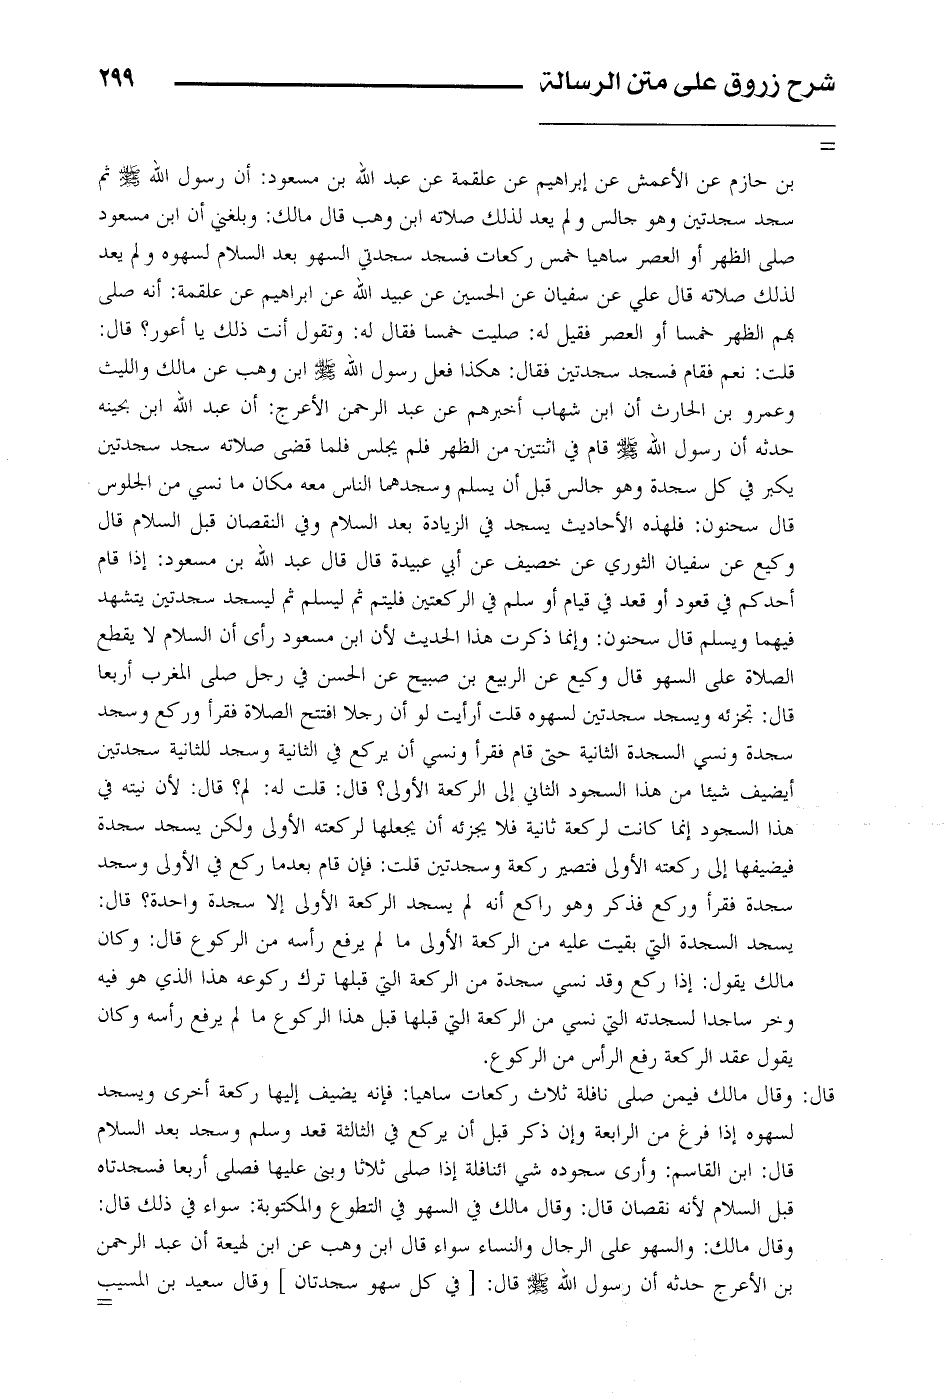 شرح زروق على متن الرسالة ٢٩٩
=
بن حازم عن الأعمش عن إبراهيم عن علقمة عن عبد الله بن مسعود: أن رسول الله ﷺ ثم
سجد سجدتين وهو جالس ولم يعد لذلك صلاته ابن وهب قال مالك: وبلغني أن ابن مسعود
صلى الظهر أو العصر ساهيا خمس ركعات فسجد سجدتي السهو بعد السلام لسهوه ولم يعد
لذلك صلاته قال علي عن سفيان عن الحسين عن عبيد الله عن ابراهيم عن علقمة: أنه صلى
بهم الظهر خمسا أو العصر فقيل له: صليت خمسا فقال له: وتقول أنت ذلك يا أعور؟ قال:
قلت: نعم فقام فسجد سجدتين فقال: هكذا فعل رسول الله ﷺ ابن وهب عن مالك والليث
وعمرو بن الحارث أن ابن شهاب أخبرهم عن عبد الرحمن الأعرج: أن عبد الله ابن بحينه
حدثه أن رسول الله ﷺ قام في اثنتين من الظهر فلم يجلس فلما قضى صلاته سجد سجدتين
يكبر في كل سجدة وهو جالس قبل أن يسلم وسجدهما الناس معه مكان ما نسي من الجلوس
قال سحنون: فلهذه الأحاديث يسجد في الزيادة بعد السلام وفي النقصان قبل السلام قال
وكيع عن سفيان الثوري عن خصيف عن أبي عبيدة قال قال عبد الله بن مسعود: إذا قام
أحدكم في قعود أو قعد في قيام أو سلم في الركعتين فليتم ثم ليسلم ثم ليسجد سجدتين يتشهد
فيهما ويسلم قال سحنون: وإنما ذكرت هذا الحديث لأن ابن مسعود رأى أن السلام لا يقطع
الصلاة على السهو قال وكيع عن الربيع بن صبيح عن الحسن في رجل صلى المغرب أربعا
قال: تجزئه ويسجد سجدتين لسهوه قلت أرأيت لو أن رجلا افتتح الصلاة فقرأ وركع وسجد
سجدة ونسي السجدة الثانية حتى قام فقرأ ونسي أن يركع في الثانية وسجد للثانية سجدتين
أيضيف شيئا من هذا السجود الثاني إلى الركعة الأولى؟ قال: قلت له: لم؟ قال: لأن نيته في
هذا السجود إنما كانت لركعة ثانية فلا يجزئه أن يجعلها لركعته الأولى ولكن يسجد سجدة
فيضيفها إلى ركعته الأولى فتصير ركعة وسجدتين قلت: فإن قام بعدما ركع في الأولى وسجد
سجدة فقرأ وركع فذكر وهو راكع أنه لم يسجد الركعة الأولى إلا سجدة واحدة؟ قال:
يسجد السجدة التي بقيت عليه من الركعة الأولى ما لم يرفع رأسه من الركوع قال: وكان
مالك يقول: إذا ركع وقد نسي سجدة من الركعة التي قبلها ترك ركوعه هذا الذي هو فيه
وخر ساجدا لسجدته التي نسي من الركعة التي قبلها قبل هذا الركوع ما لم يرفع رأسه وكان
يقول عقد الركعة رفع الرأس من الركوع.
قال: وقال مالك فيمن صلى نافلة ثلاث ركعات ساهيا: فإنه يضيف إليها ركعة أخرى ويسجد
لسهوه إذا فرغ من الرابعة وإن ذكر قبل أن يركع في الثالثة قعد وسلم وسجد بعد السلام
قال: ابن القاسم: وأرى سجوده شي النافلة إذا صلى ثلاثا وبنى عليها فصلى أربعا فسجدتاه
قبل السلام لأنه نقصان قال: وقال مالك في السهو في التطوع والمكتوبة: سواء في ذلك قال:
وقال مالك: والسهو على الرجال والنساء سواء قال ابن وهب عن ابن لهيعة أن عبد الرحمن
بن الأعرج حدثه أن رسول الله ﷺ قال: [ في كل سهو سجدتان ] وقال سعيد بن المسيب
=